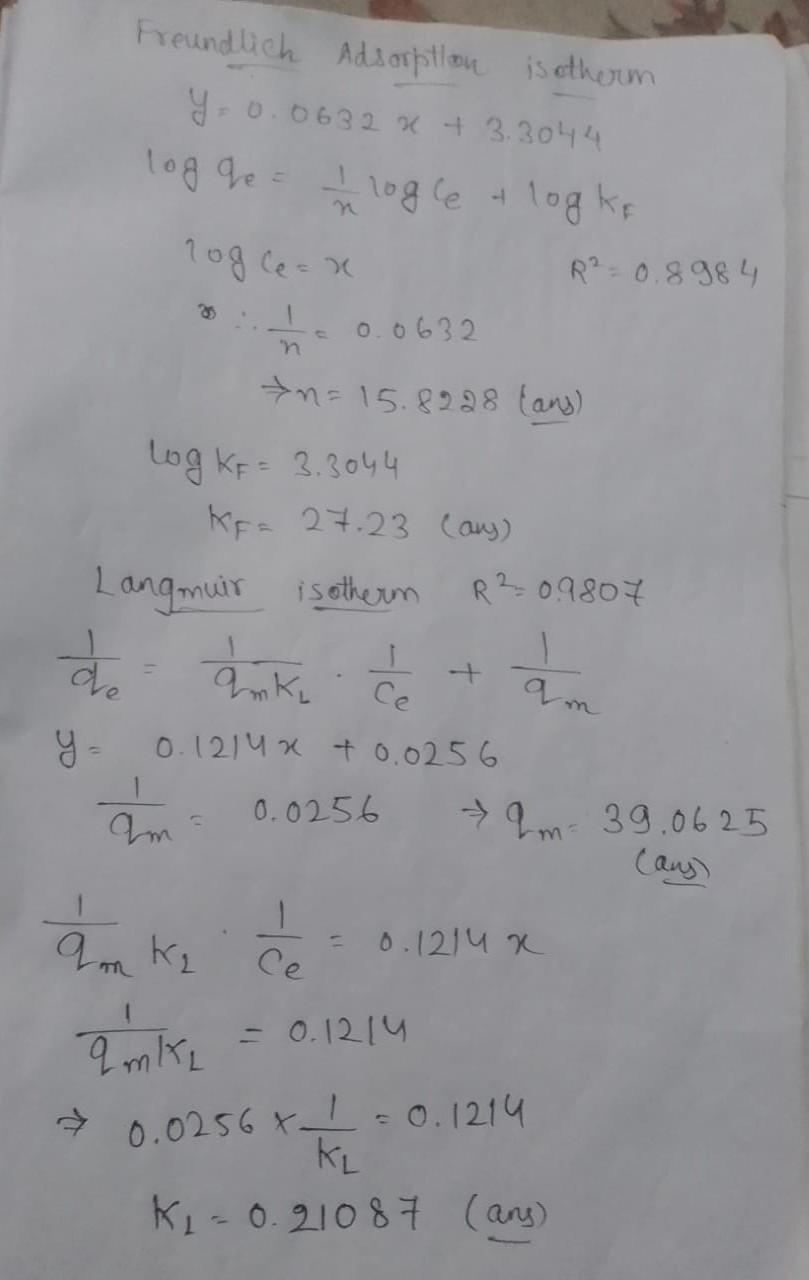 Freundlich Adsorption isotherm
y = 0.0632 x + 3.3044
log qe = 1/n log Ce + log KF
log Ce = x R² = 0.8984
∴ 1/n = 0.0632
⇒ n = 15.8228 (ans)
log KF = 3.3044
KF = 27.23 (ans)
Langmuir isotherm R² = 0.9807
1/qe = 1/qmKL · 1/Ce + 1/qm
y = 0.1214x + 0.0256
1/qm = 0.0256 ⇒ qm = 39.0625
(ans)
1/qm KL · 1/Ce = 0.1214 x
1/qmKL = 0.1214
⇒ 0.0256 × 1/KL = 0.1214
KL = 0.21087 (ans)